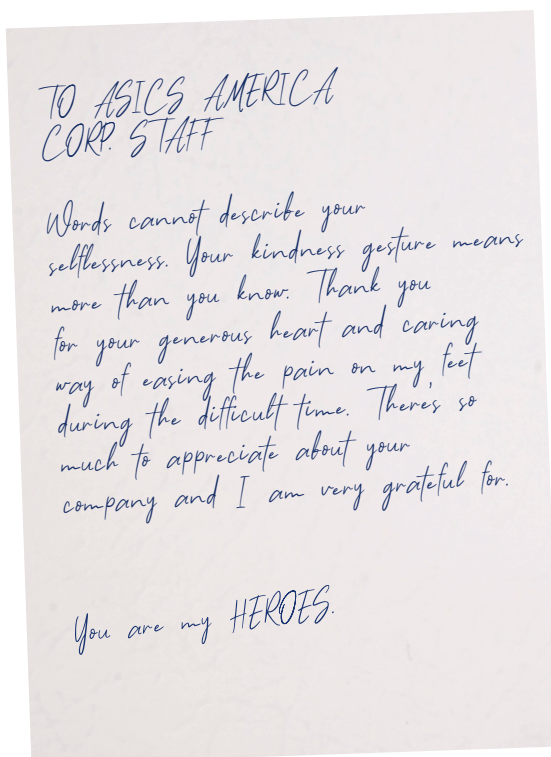 TO ASICS AMERICA
CORP. STAFF
Words cannot describe your
selflessness. Your kindness gesture means
more than you know. Thank you
for your generous heart and caring
way of easing the pain on my feet
during the difficult time. There's so
much to appreciate about your
company and I am very grateful for.
You are my HEROES.